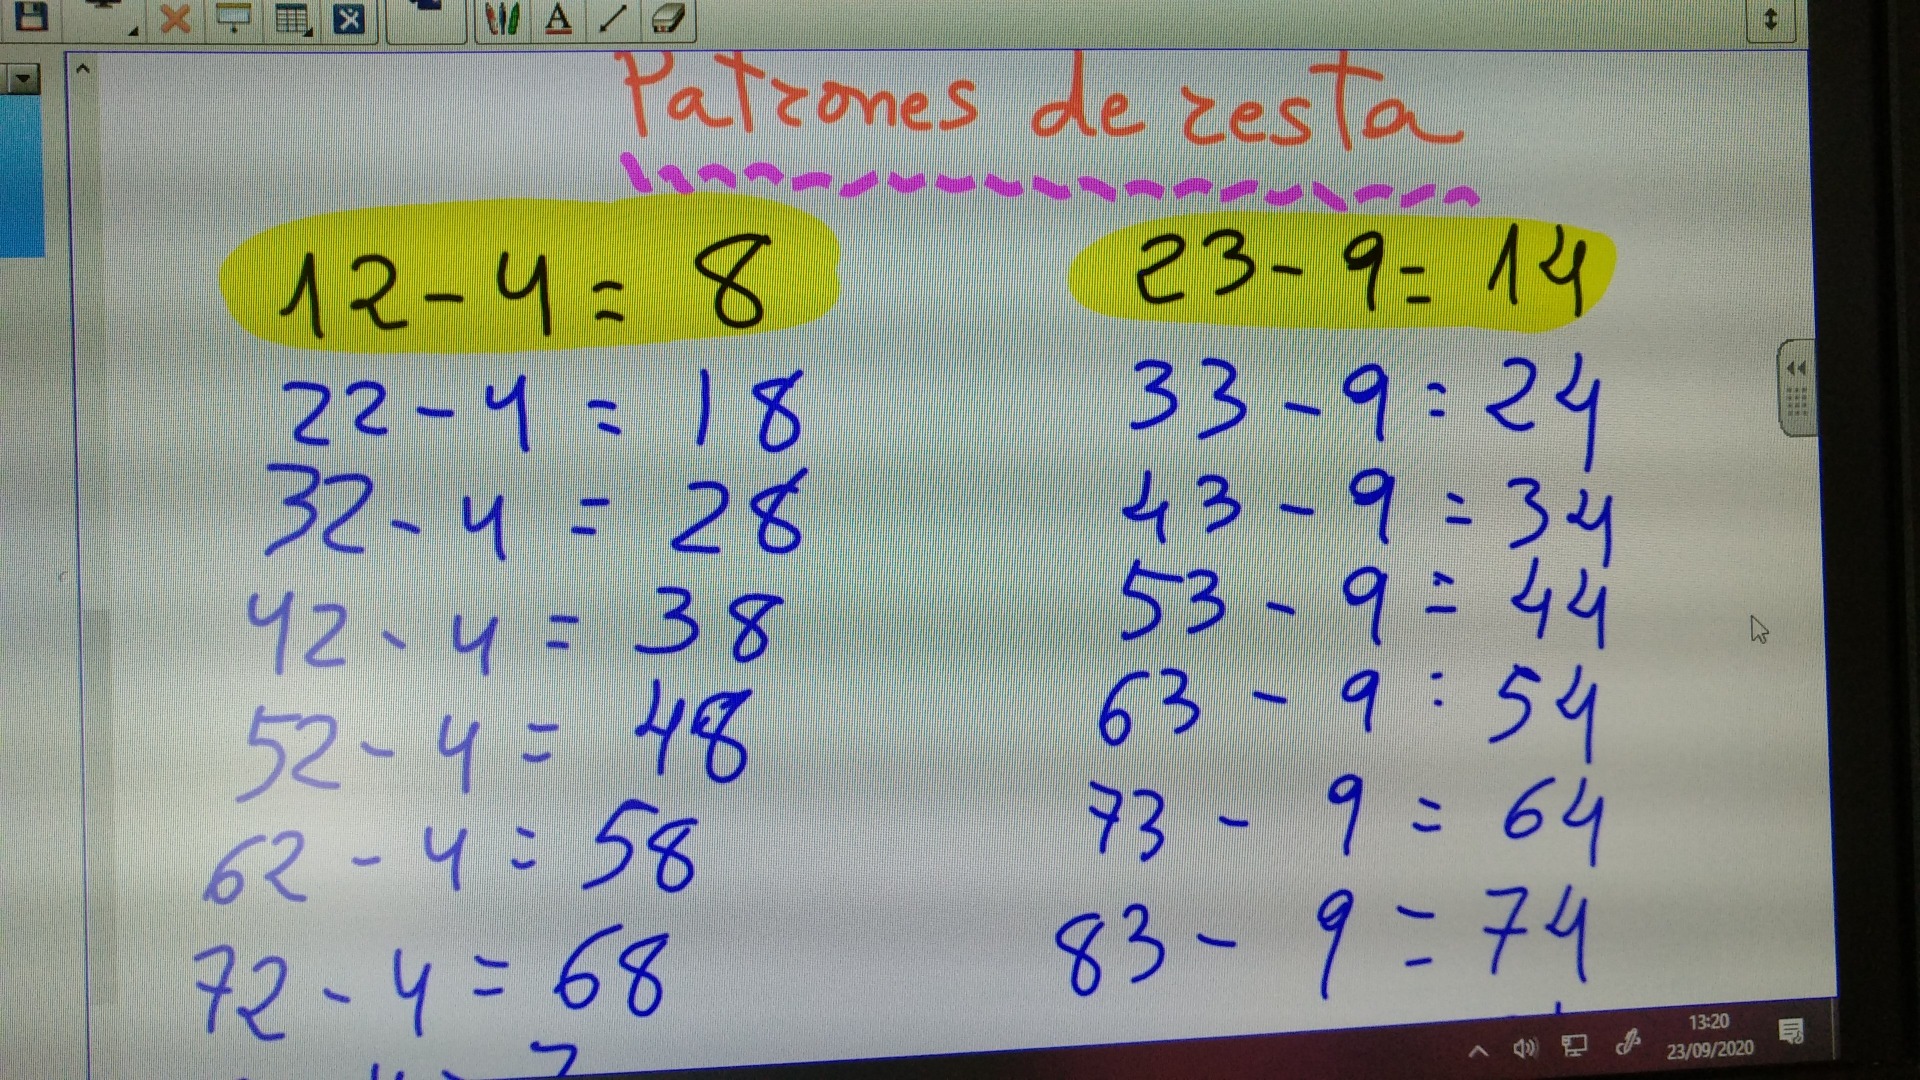 Patrones de resta
12 - 4 = 8
22 - 4 = 18
32 - 4 = 28
42 - 4 = 38
52 - 4 = 48
62 - 4 = 58
72 - 4 = 68
23 - 9 = 14
33 - 9 = 24
43 - 9 = 34
53 - 9 = 44
63 - 9 = 54
73 - 9 = 64
83 - 9 = 74
13:20
23/09/2020